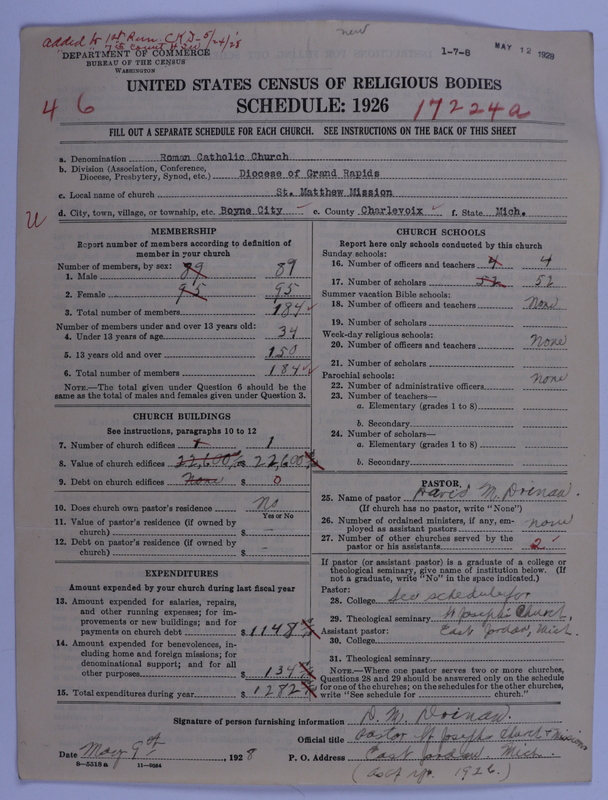 new
added to 1st Run C.K.J- 5/24/28
1-7-8
MAY 12 1928
DEPARTMENT OF COMMERCE
BUREAU OF THE CENSUS
WASHINGTON
UNITED STATES CENSUS OF RELIGIOUS BODIES
4 6
SCHEDULE: 1926
17224a
FILL OUT A SEPARATE SCHEDULE FOR EACH CHURCH. SEE INSTRUCTIONS ON THE BACK OF THIS SHEET
a. Denomination Roman Catholic Church
b. Division (Association, Conference,
Diocese, Presbytery, Synod, etc.) Diocese of Grand Rapids
c. Local name of church St. Matthew Mission
U
d. City, town, village, or township, etc. Boyne City e. County Charlevoix f. State Mich.
MEMBERSHIP
Report number of members according to definition of
member in your church
Number of members, by sex:
1. Male 89 89
2. Female 95 95
3. Total number of members 184
Number of members under and over 13 years old:
4. Under 13 years of age 34
5. 13 years old and over 150
6. Total number of members 184
NOTE.—The total given under Question 6 should be the
same as the total of males and females given under Question 3.
CHURCH BUILDINGS
See instructions, paragraphs 10 to 12
7. Number of church edifices 1 1
8. Value of church edifices 22,600 $ 22,600
9. Debt on church edifices None $ 0
10. Does church own pastor's residence No
Yes or No
11. Value of pastor's residence (if owned by
church) $ -
12. Debt on pastor's residence (if owned by
church) $ -
EXPENDITURES
Amount expended by your church during last fiscal year
13. Amount expended for salaries, repairs,
and other running expenses; for im-
provements or new buildings; and for
payments on church debt $ 1148
14. Amount expended for benevolences, in-
cluding home and foreign missions; for
denominational support; and for all
other purposes $ 134
15. Total expenditures during year $ 1282
CHURCH SCHOOLS
Report here only schools conducted by this church
Sunday schools:
16. Number of officers and teachers 4 4
17. Number of scholars 52 52
Summer vacation Bible schools:
18. Number of officers and teachers None
19. Number of scholars
Week-day religious schools:
20. Number of officers and teachers None
21. Number of scholars
Parochial schools:
22. Number of administrative officers None
23. Number of teachers—
a. Elementary (grades 1 to 8)
b. Secondary
24. Number of scholars—
a. Elementary (grades 1 to 8)
b. Secondary
PASTOR
25. Name of pastor David M. Drinan.
(If church has no pastor, write "None")
26. Number of ordained ministers, if any, em-
ployed as assistant pastors none
27. Number of other churches served by the
pastor or his assistants 2
If pastor (or assistant pastor) is a graduate of a college or
theological seminary, give name of institution below. (If
not a graduate, write "No" in the space indicated.)
Pastor:
28. College See schedule for
29. Theological seminary St Josephs Church,
Assistant pastor: East Jordan, Mich.
30. College
31. Theological seminary
NOTE.—Where one pastor serves two or more churches,
Questions 28 and 29 should be answered only on the schedule
for one of the churches; on the schedules for the other churches,
write "See schedule for church."
Signature of person furnishing information D. M. Drinan.
Official title Pastor St Josephs Church & Missions
Date May 9th, 1928 P. O. Address East Jordan. Mich.
8-5518a 11-9084
(as of yr. 1926.)